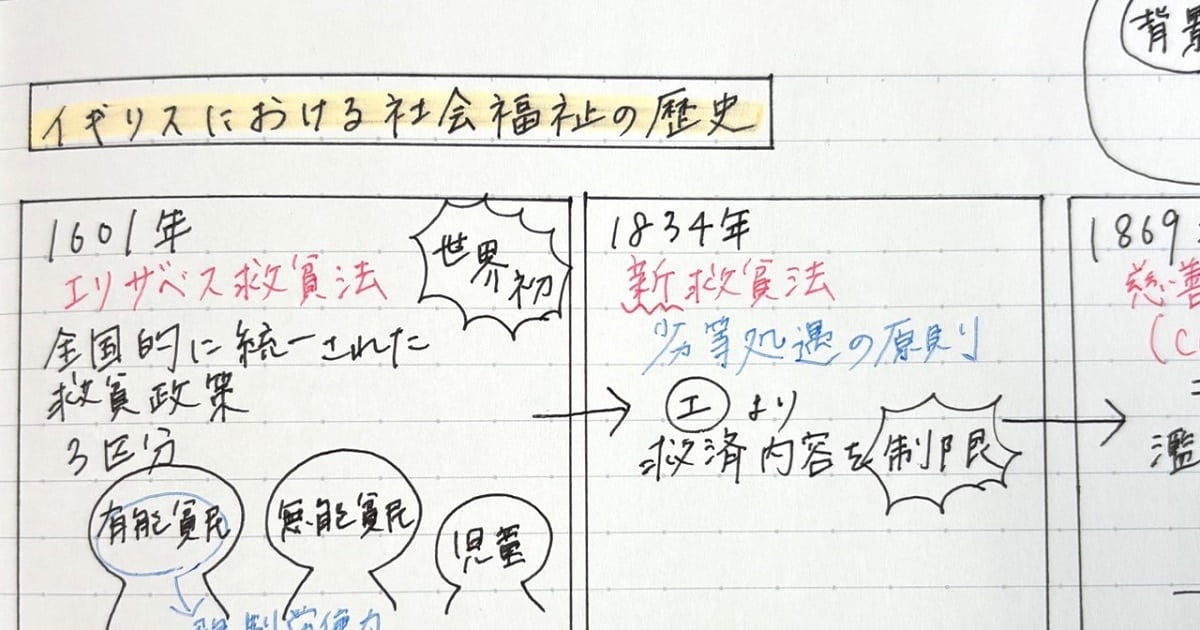 背景
イギリスにおける社会福祉の歴史
1601年
世界初
エリザベス救貧法
全国的に統一された
救貧政策
3区分
有能貧民
無能貧民
児童
1834年
新救貧法
劣等処遇の原則
エより
救済内容を制限
1869
慈善
(C
濫